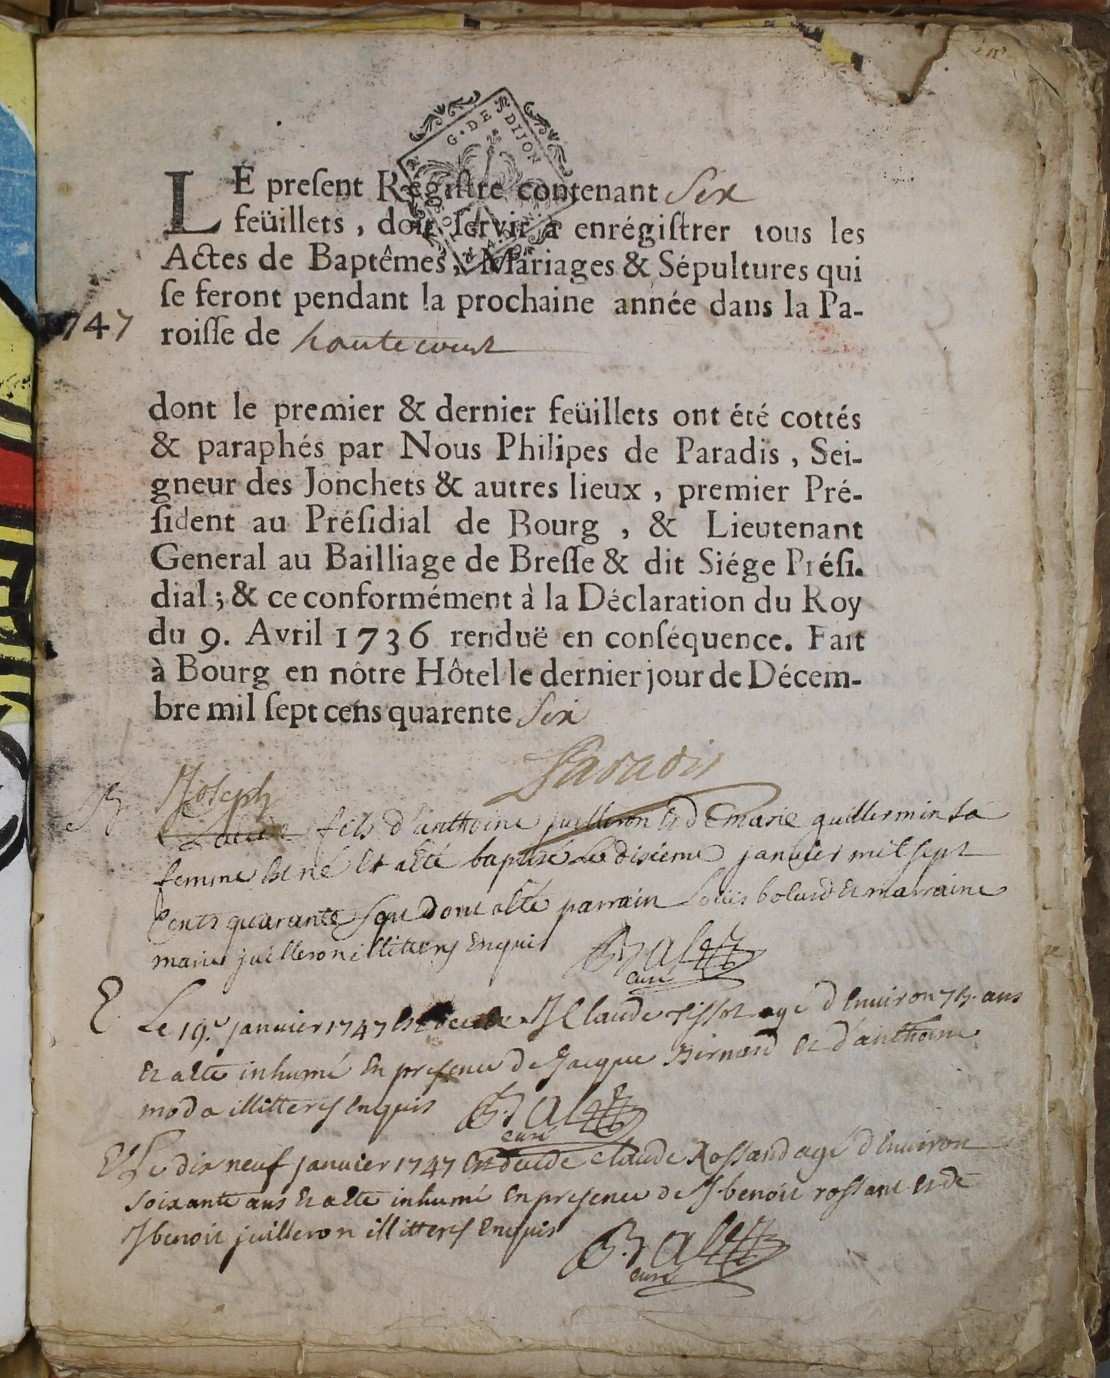 G. DE DIJON
LE preſent Regiſtre contenant Six
feüillets, doit ſervir à enrégiſtrer tous les
Actes de Baptêmes, Mariages & Sépultures qui
ſe feront pendant la prochaine année dans la Pa-
1747
roiſſe de hautecourt
dont le premier & dernier feüillets ont été cottés
& paraphés par Nous Philipes de Paradis, Sei-
gneur des Jonchets & autres lieux, premier Pré-
ſident au Préſidial de Bourg, & Lieutenant
General au Bailliage de Breſſe & dit Siége Préſi.
dial; & ce conformément à la Déclaration du Roy
du 9. Avril 1736 renduë en conſéquence. Fait
à Bourg en nôtre Hôtel le dernier jour de Décem-
bre mil ſept cens quarente Six
Paradis
B. Joseph
fils d'anthoine juilleron et de marie guillermin sa
femme est né et a esté baptisé le dixieme janvier mil sept
cents quarante sept dont a esté parrain Louis et marraine
marie juilleron illitterés enquis
curé
E. Le 19e. janvier 1747 est decede Claude tissot agé d'environ 75. ans
et a esté inhumé en presence de Jacque Bernard et d'anthoine
moda illitterés enquis
curé
E Le dix neuf janvier 1747 est decede claude Rossand agé d'environ
soixante ans et a esté inhumé en presence de benoit rossand et de
benoit juilleron illitterés enquis
curé